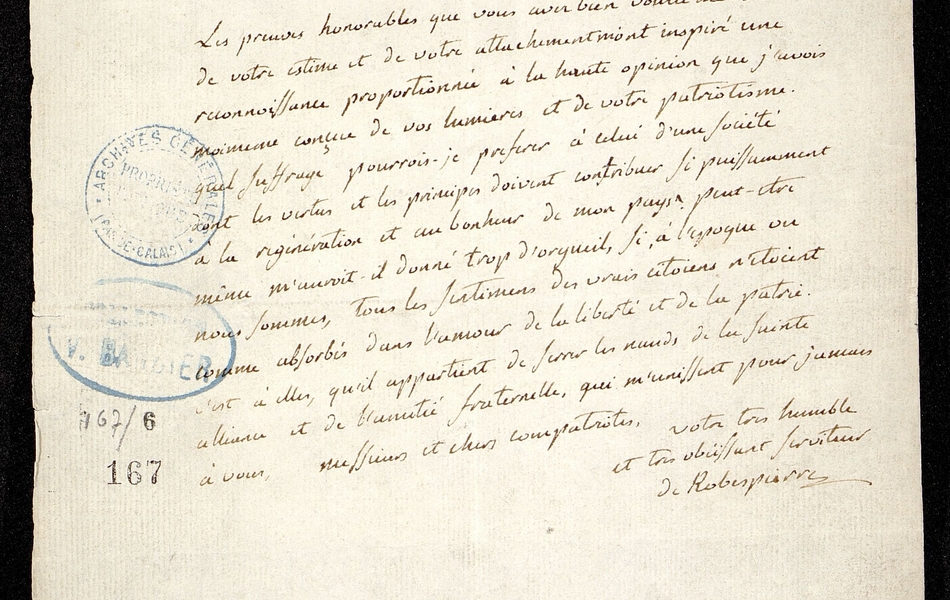 Les preuves honorables que vous avez bien voulu me
de votre estime et de votre attachement m'ont inspiré une
reconnoissance proportionnée à la haute opinion que j'avois
moimeme conçue de vos lumieres et de votre patriotisme.
quel suffrage pourrois-je preferer à celui d'une société
dont les vertus et les principes doivent contribuer si puissamment
à la régénération et au bonheur de mon pays? peut-etre
même m'auroit-il donné trop d'orgueil, si, à l'époque ou
nous sommes, tous les sentimens des vrais citoiens n'étoient
comme absorbés dans l'amour de la liberté et de la patrie.
c'est à elles, qu'il appartient de serrer les nœuds de la sainte
alliance et de l'amitié fraternelle, qui m'unissent pour jamais
à vous, messieurs et chers compatriotes. votre tres humble
et tres obéissant serviteur
de Robespierre
ARCHIVES GÉNÉRALES
PROPRIÉTÉ
PAS-DE-CALAIS
V. BARBIER
167/6
167